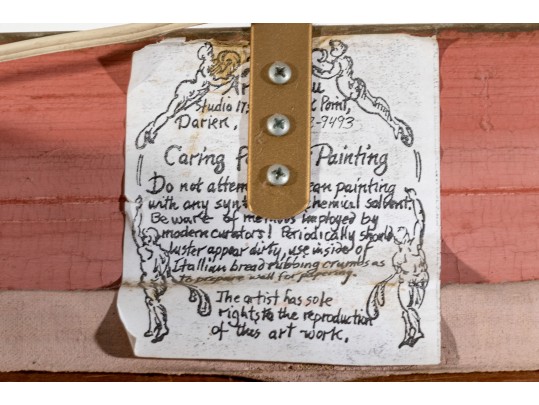 Studio 17 Point,
Darien, 7493
Caring Painting
Do not attem ean painting
with any syn chemical solvent.
Beware of methods imployed by
modern curators! Periodically should
luster appear dirty, use inside of
Itallian bread rubbing crumbs as
to prepare wall for papering.
The artist has sole
rights to the reproduction
of this art work.